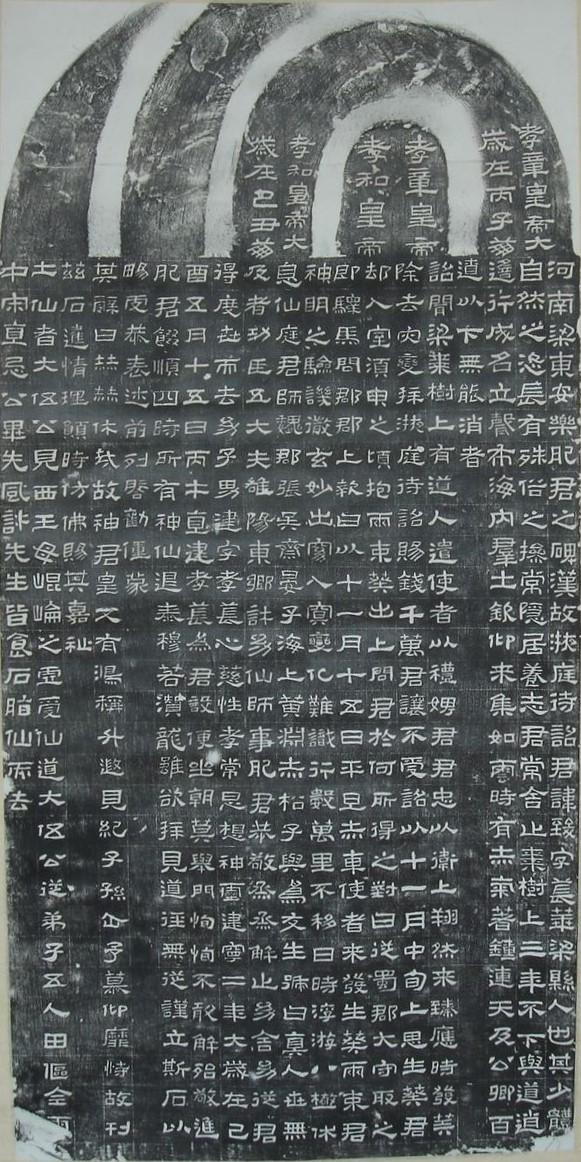 孝章皇帝大
歲在丙子崩
孝章皇帝
孝和皇帝
孝和皇帝大
歲在己丑崩
河南梁東安樂肥君之碑漢故掖庭待詔君諱致字萇華梁縣人也其少體
自然之恣長有殊俗之操常隱居養志君常舍止棗樹上三年不下與道逍
遙行成名立聲布海內羣士欽仰來集如雲時有赤氣著鐘連天及公卿百
遼以下無能消者
詔聞梁棗樹上有道人遣使者以禮娉君君忠以衛上翔然來臻應時發筭
除去災變拜掖庭待詔賜錢千萬君讓不受詔以十一月中旬上思生葵君
却入室須臾之頃抱兩束葵出上問君於何所得之對曰從蜀郡大守取之
即驛馬問郡郡上報曰以十一月十五日平旦赤車使者來發生葵兩束君
神明之驗譏徹玄妙出窈入冥變化難識行數萬里不移日時浮游八極休
息仙庭君師魏郡張吳齋晏子海上黃淵赤松子與為友生號曰真人世無
及者功臣五大夫雒陽東鄉許幼仙師事肥君恭敬烝烝解止幼舍幼從君
得度世而去幼子男建字孝萇心慈性孝常思想神靈建寧二年大歲在己
酉五月十五日丙午直建孝萇為君設便坐朝莫舉門恂恂不敢解殆敬進
肥君餟順四時所有神仙退泰穆若瀵龍雖欲拜見道徑無從謹立斯石以
暢虔恭表述前列啓勸僮蒙
其辭曰赫赫休哉故神君皇又有鴻稱升遐見紀子孫企予慕仰靡恃故刊
茲石達情理願時仿佛賜其嘉祉
土仙者大伍公見西王母崐崘之虛受仙道大伍公從弟子五人田傴全雨
中宋直忌公畢先風許先生皆食石脂仙而去